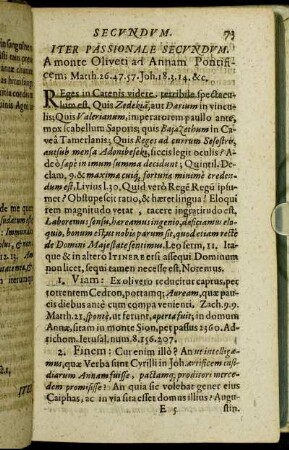 SECVNDVM. 73
ITER PASSIONALE SECVNDVM.
A monte Oliveti ad Annam Pontifi-
cem; Matth. 26.47.57. Joh. 18.3.14. &c.
REges in Catenis videre, terribile spectacu-
lum est. Quis Zedekiã, aut Darium in vincu-
lis; Quis Valerianum, imperatorem paullo ante,
mox scabellum Saporis; quis Bajazethum in Ca-
veâ Tamerlanis; Quis Reges ad currum Sesostris,
aut sub mensa Adonibeseki, siccis legit oculis? A-
deò sæpè in imum summa decidunt, Quintil. De-
clam, 9. & maximæ cuiq; fortunæ minimè creden-
dum est, Livius l. 30. Quid verò Regẽ Regũ ipsu-
met? Obstupescit ratio, & hæret lingua! Eloqui
rem magnitudo vetat, tacere ingratitudo est.
Laboremus sensu, hæreamus ingenio, deficiamus elo-
quio, bonum est, ut nobis parum sit, quod etiam recte
de Domini Majestate sentimus. Leo serm, 11, Ita-
que & in altero ITINERE etsi assequi Dominum
non licet, sequi tamen necesse est. Notemus.
1. Viam: Ex oliveto reducitur captus, per
torrentem Cedron, portamq; Auream, quæ pau-
cis diebus antè cum pompa venienti. Zach. 9.9.
Matth. 21, spontè, ut ferunt, aperta fuit; in domum
Annæ, sitam in monte Sion, pet passus 2360. Ad-
richom. Jerusal. num. 8. 156. 207.
2. Finem: Cur enim illò? An ut intelliga-
mus, quæ Verba sunt Cyrilli in Joh. artificem insi-
diarum Annam fuisse, pactamq; proditori merce-
dem promisisse? An quia sic volebat gener ejus
Caiphas, ac in via sita esset domus illius? Augu-
E 5 stin.